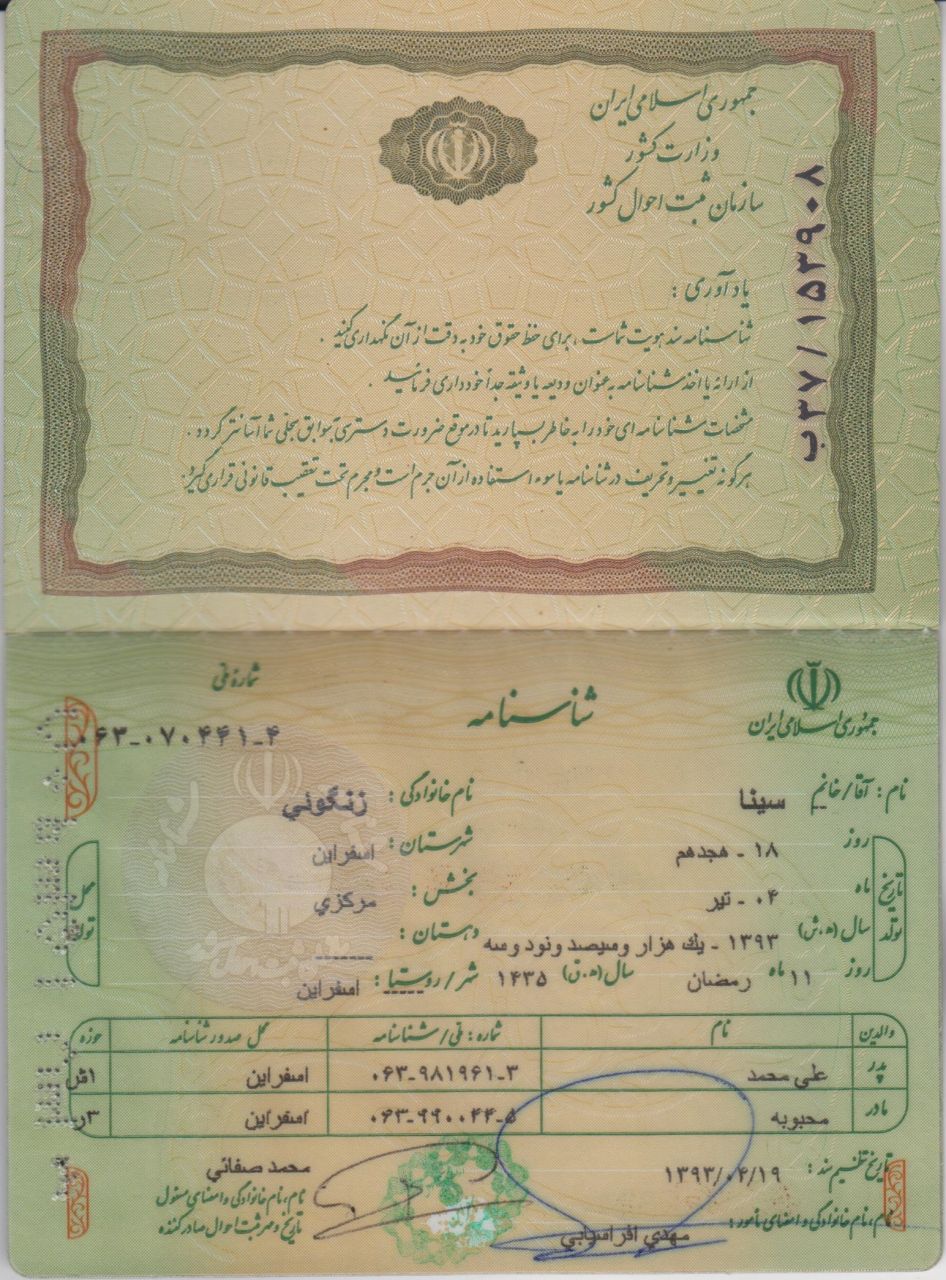 جمهوری اسلامی ایران
وزارت کشور
سازمان ثبت احوال کشور
ب۳۷/۱۵۳۹۰۸
یادآوری :
شناسنامه سند هویت شماست ، برای حفظ حقوق خود به دقت از آن نگهداری کنید .
از ارائه یا اخذ شناسنامه به عنوان ودیعه یا وثیقه جداً خودداری فرمائید .
مشخصات شناسنامه ای خود را به خاطر بسپارید تا در موقع ضرورت دسترسی به سوابق سجلی شما آسانتر گردد .
هرگونه تغییر و تحریف در شناسنامه یا سوء استفاده از آن جرم است و مجرم تحت تعقیب قانونی قرار می گیرد.
جمهوری اسلامی ایران
شناسنامه
شماره ملی
۰۶۳-۰۷۰۴۴۱-۴
نام : آقا/خانم سینا
نام خانوادگی : زنگوئي
تاریخ تولد
روز ۱۸ - هجدهم
ماه ۰۴ - تیر
سال (ه.ش) ۱۳۹۳ - يك هزار وسیصد ونود وسه
روز ۱۱ ماه رمضان سال (ه.ق) ۱۴۳۵
محل تولد
شهرستان : اسفراین
بخش : مرکزي
دهستان : ------
شهر/روستا : اسفراین
والدین نام شماره : ملی/شناسنامه محل صدور شناسنامه حوزه
پدر علی محمد ۰۶۳-۹۸۱۹۶۱-۳ اسفراین ۱ش
مادر محبوبه ۰۶۳-۹۹۰۰۴۴-۵ اسفراین ۳ر
تاریخ تنظیم سند : ۱۳۹۳/۰۴/۱۹
نام، نام خانوادگی و امضای مأمور : مهدي افراسیابي
محمد صفائي
نام، نام خانوادگی و امضای مسئول
تاریخ و مهر ثبت احوال صادر کننده